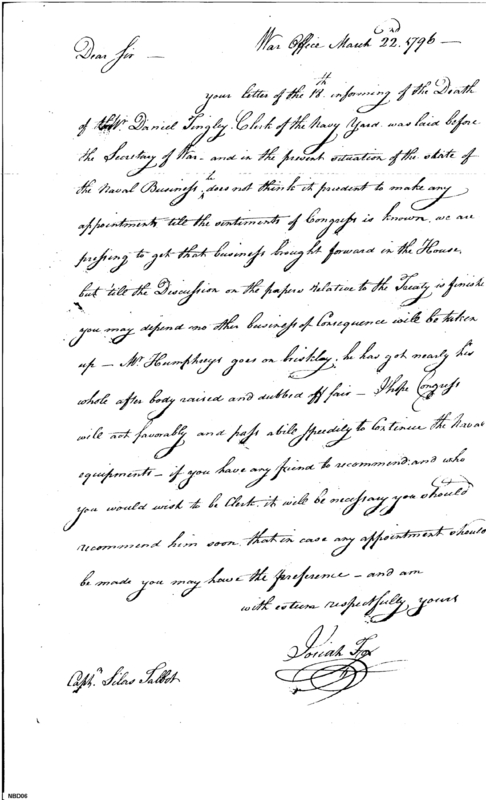 War Office March 22nd. 1796 —
Dear Sir —
your letter of the 18th. informing of the Death
of Mr. Daniel Tingley. Clerk of the Navy Yard was laid before
the Secretary of War – and in the present situation of the state of
the Naval Business, he does not think it prudent to make any
appointments till the sentiments of Congress is known. we are
pressing to get that business brought forward in the House,
but till the Discussion on the papers relative to the Treaty is finishe
you may depend no other business of Consequence will be taken
up — Mr. Humphreys goes on briskley, he has got nearly his
whole after body raised and dubbed off fair – I hope Congress
will act favorably and pass a bill speedily to Continue the Naval
equipments – if you have any friend to recommend: and who
you would wish to be Clerk. it will be necessary you should
recommend him soon, that in case any appointment should
be made you may have the preference – and am
with esteem respectfully yours
Josiah Fox
Captn. Silas Talbot
NBD06